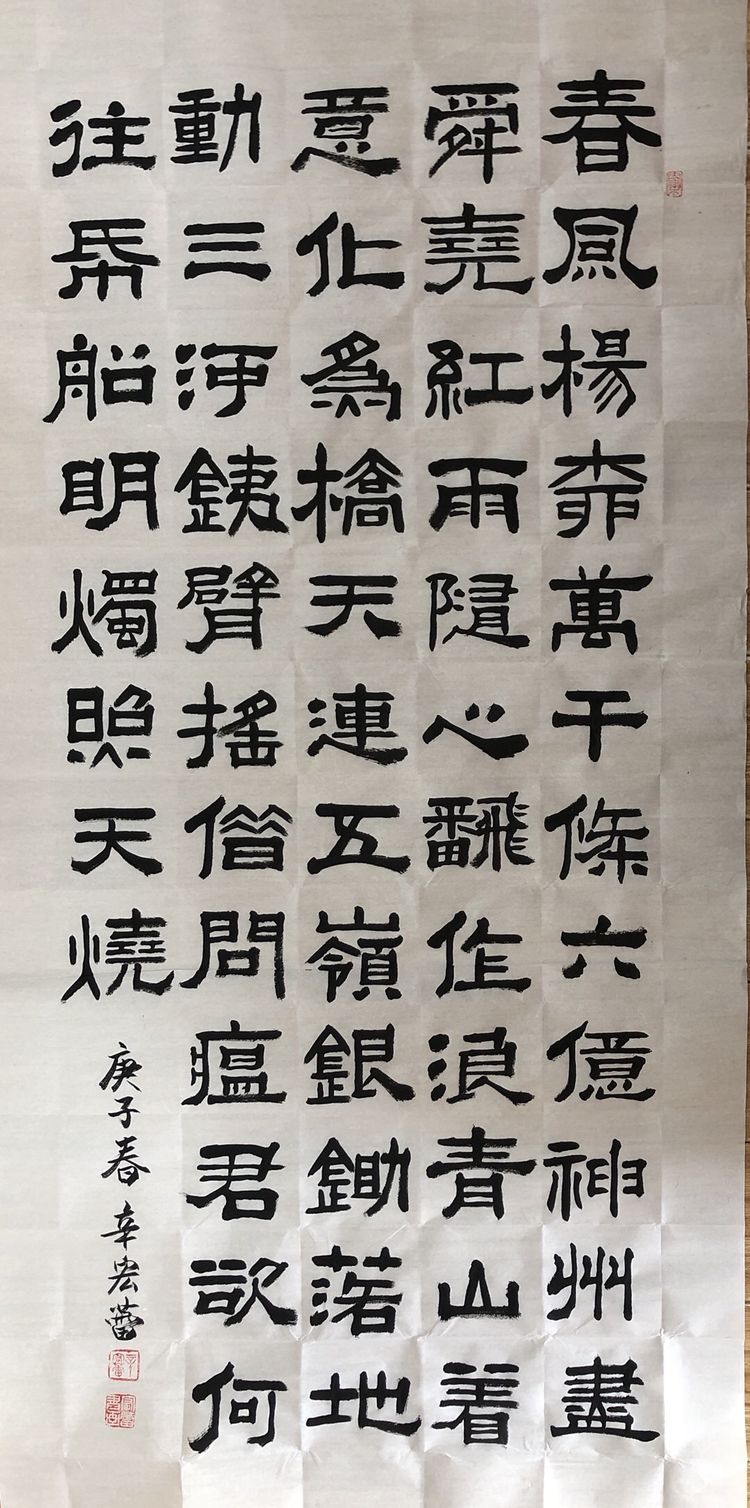 春風楊柳萬千條六億神州盡
舜堯紅雨隨心飜作浪青山着
意化為橋天連五嶺銀鋤落地
動三河銕臂搖借問瘟君欲何
往帋船明燭照天燒
庚子春 辛宏蕾